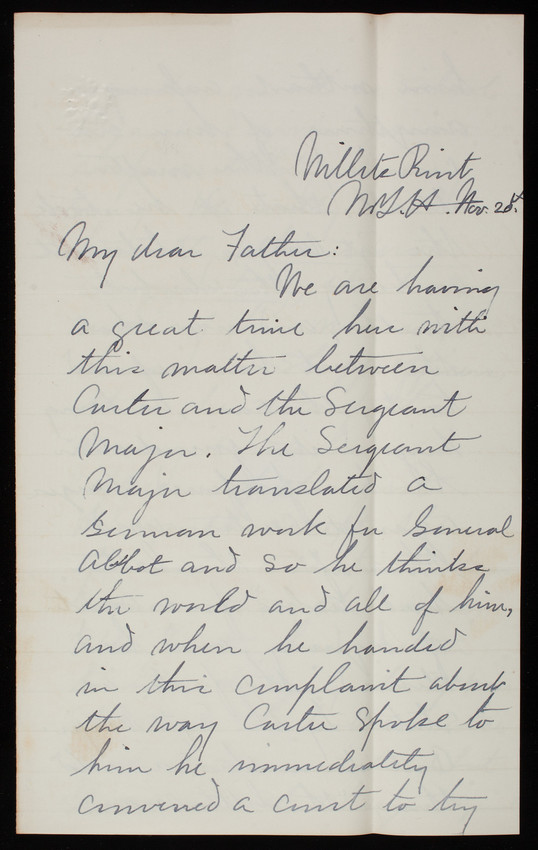 Willets Point
N.Y.H. Nov. 20th.
My dear Father:
We are having
a great time here with
this matter between
Carter and the Sergeant
Major. The Sergeant
Major translated a
German work for General
Abbot and so he thinks
the world and all of him,
and when he handed
in this complaint about
the way Carter spoke to
him he immediately
convened a court to try